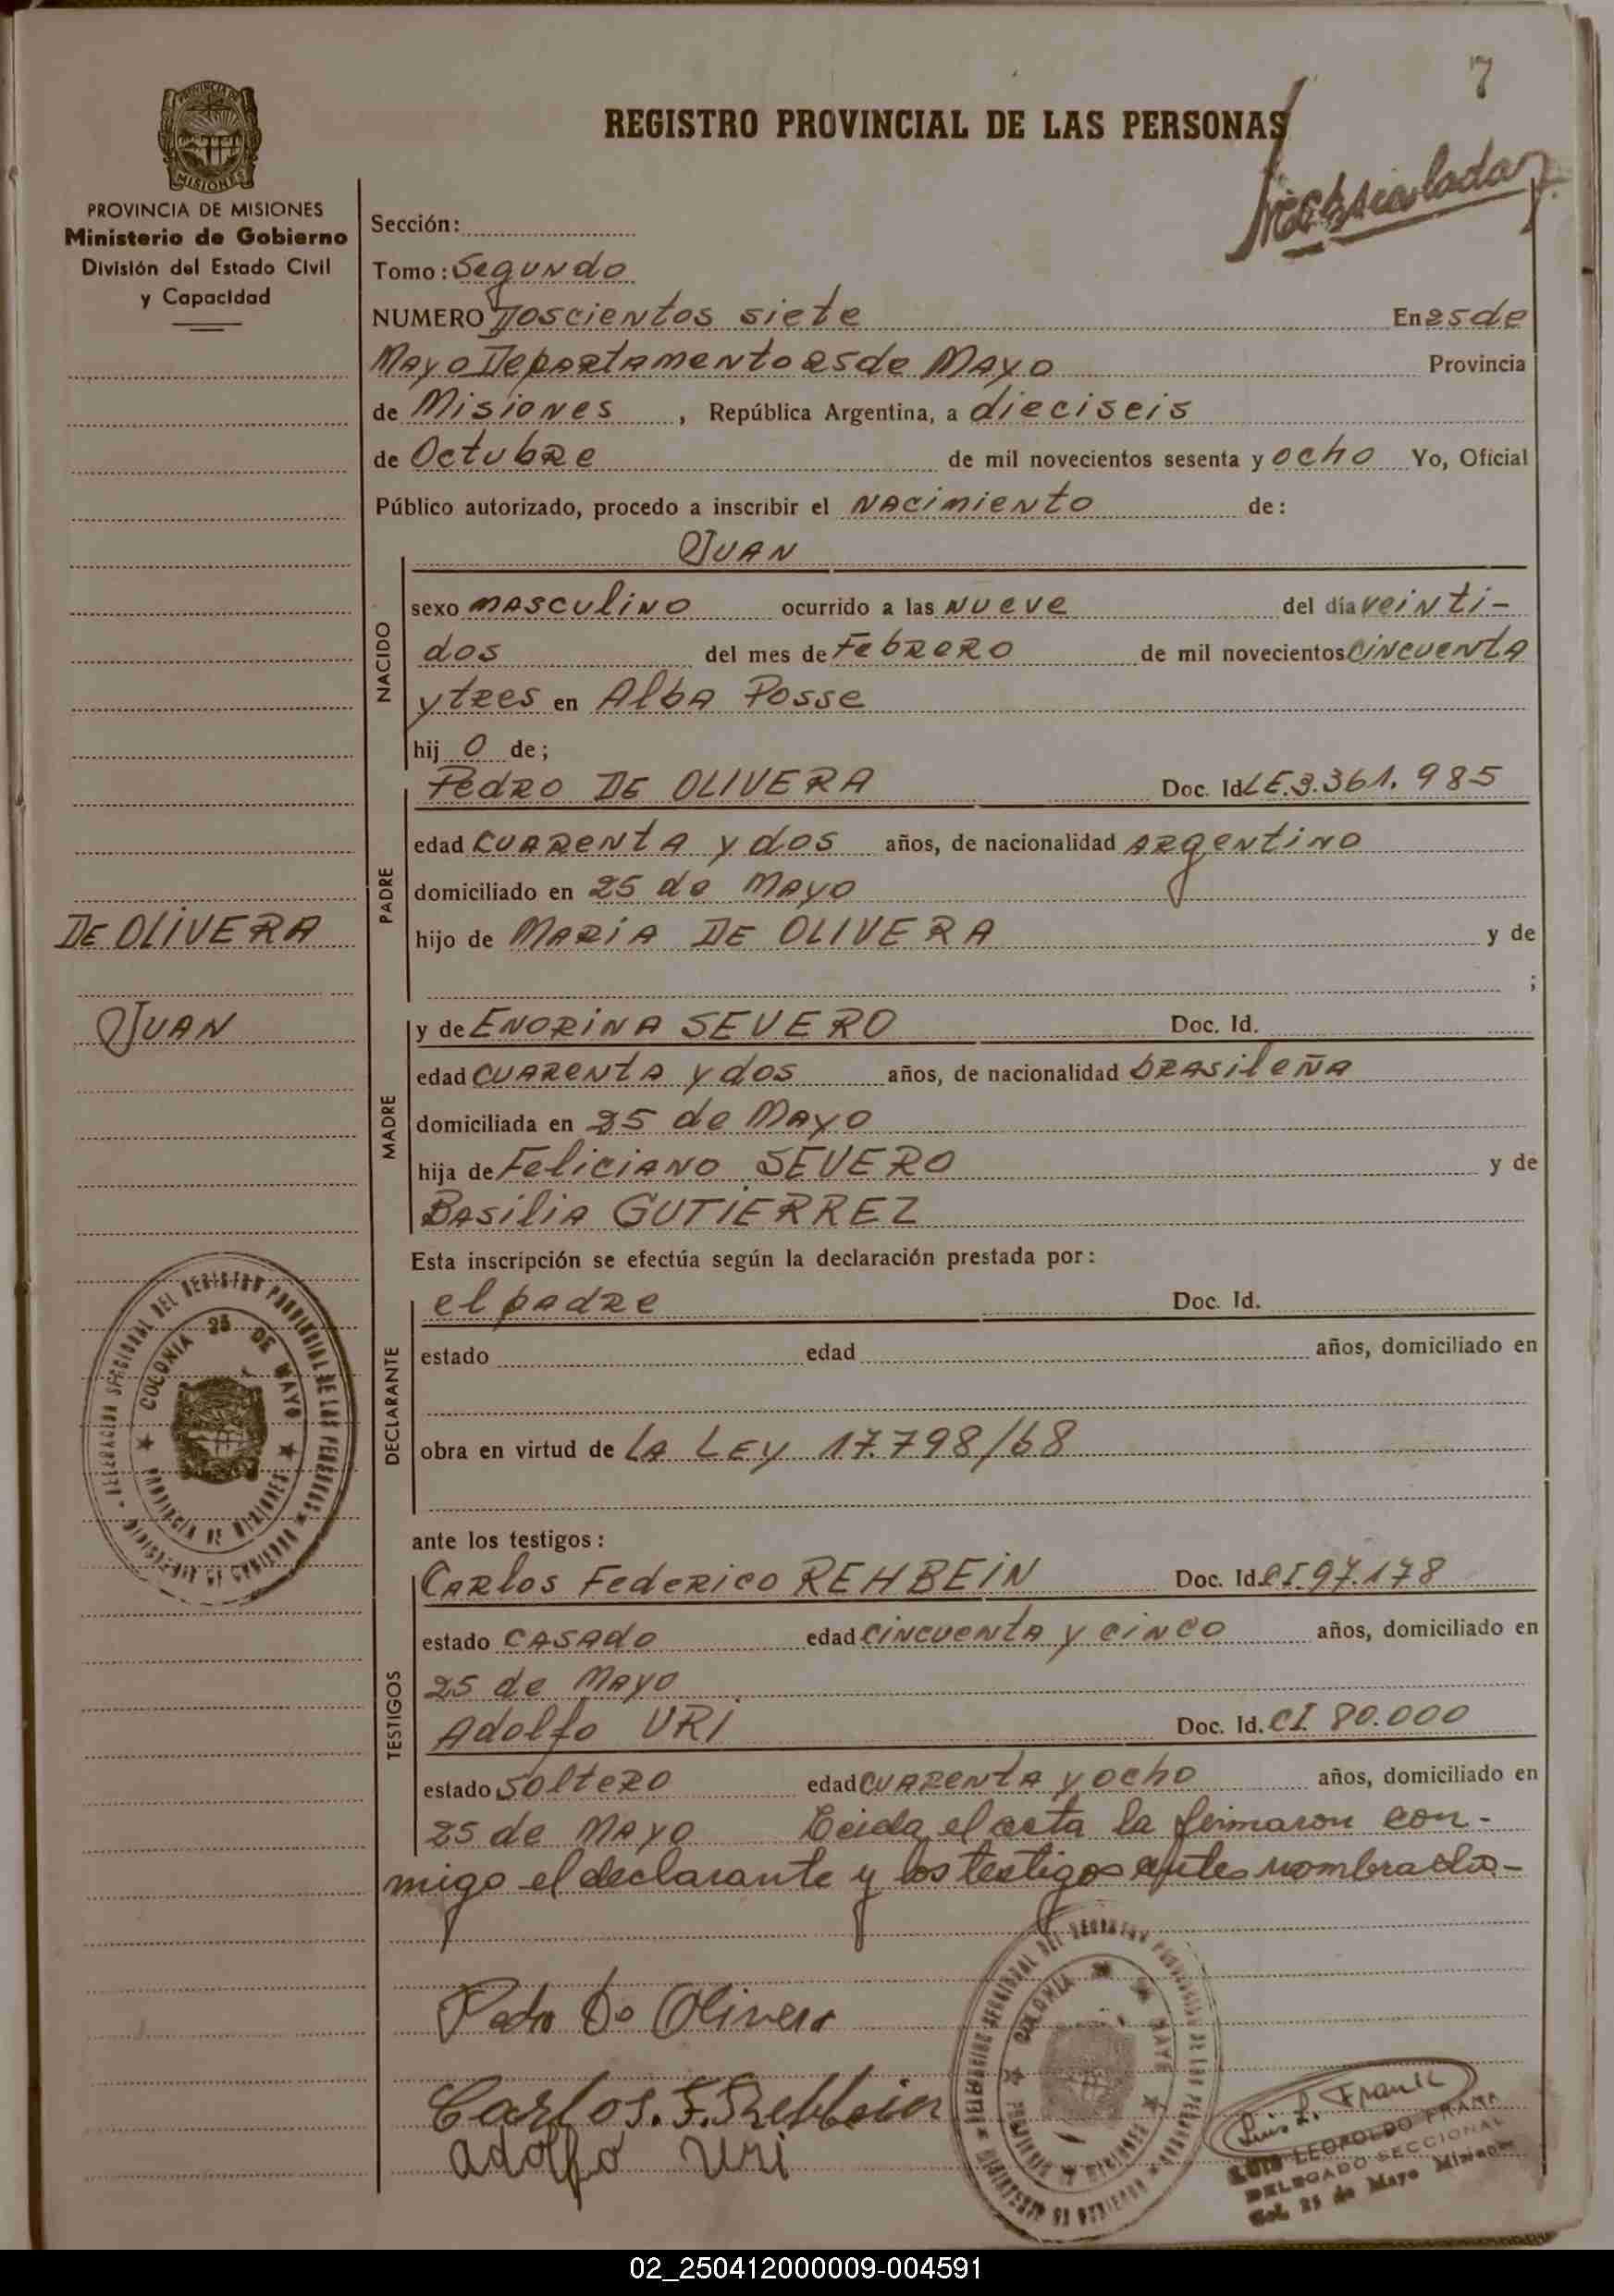 7
REGISTRO PROVINCIAL DE LAS PERSONAS
PROVINCIA DE
MISIONES
PROVINCIA DE MISIONES
Ministerio de Gobierno
División del Estado Civil
y Capacidad
Sección:
Tomo: Segundo
NUMERO Doscientos siete En 25 de
Mayo Departamento 25 de Mayo Provincia
de Misiones, República Argentina, a dieciseis
de Octubre de mil novecientos sesenta y ocho Yo, Oficial
Público autorizado, procedo a inscribir el nacimiento de:
JUAN
NACIDO
sexo masculino ocurrido a las nueve del día veinti-
dos del mes de Febrero de mil novecientos cincuenta
y tres en Alba Posse
hij o de;
PADRE
Pedro DE OLIVERA Doc. Id LE. 3.361.985
edad cuarenta y dos años, de nacionalidad Argentino
domiciliado en 25 de Mayo
hijo de MARIA DE OLIVERA y de
;
DE OLIVERA
JUAN
MADRE
y de ENORINA SEVERO Doc. Id.
edad cuarenta y dos años, de nacionalidad brasileña
domiciliada en 25 de Mayo
hija de Feliciano SEVERO y de
Basilia GUTIERREZ
Esta inscripción se efectúa según la declaración prestada por:
DECLARANTE
el padre Doc. Id.
estado edad años, domiciliado en
obra en virtud de LA LEY 17.798/68
ante los testigos:
TESTIGOS
Carlos Federico REHBEIN Doc. Id. CI 97.178
estado casado edad cincuenta y cinco años, domiciliado en
25 de Mayo
Adolfo URI Doc. Id. CI. 80.000
estado soltero edad cuarenta y ocho años, domiciliado en
25 de Mayo Leida el acta la firmaron con-
migo el declarante y los testigos antes nombrados-
COLONIA 25 DE MAYO
PROVINCIA DE MISIONES
Pedro De Olivera
Carlos. F. Rehbein
Adolfo Uri
COLONIA 25 DE MAYO
PROVINCIA DE MISIONES
Luis L. Frank
LUIS LEOPOLDO FRANK
DELEGADO SECCIONAL
Col. 25 de Mayo Misiones
02_250412000009-004591